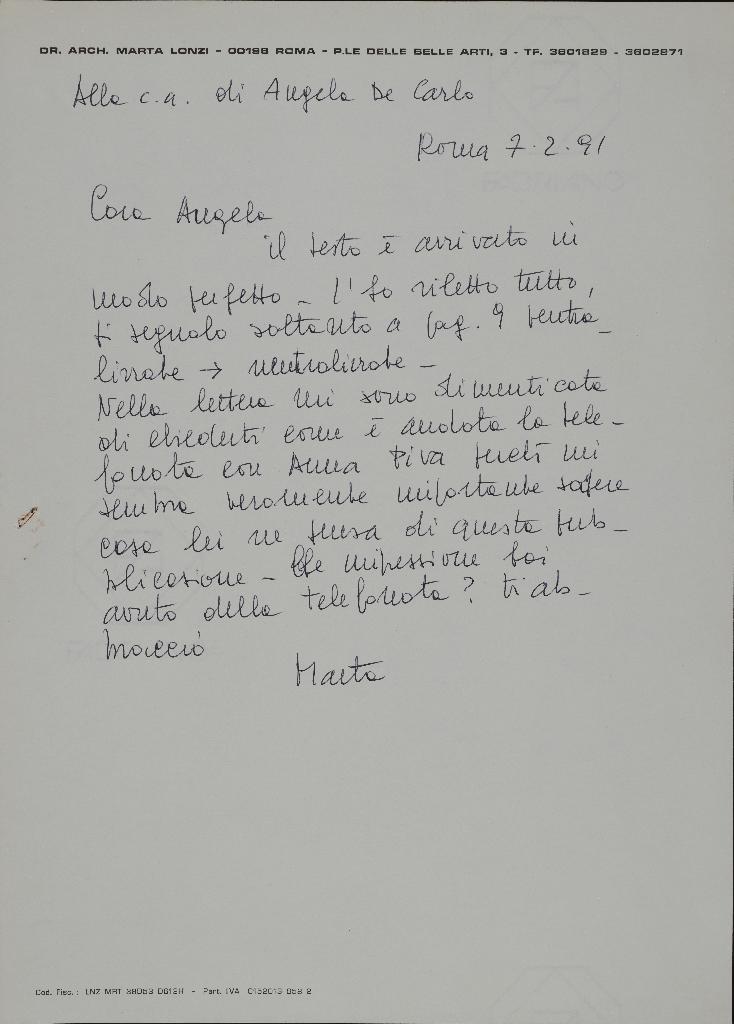 DR. ARCH. MARTA LONZI - 00196 ROMA - P.LE DELLE BELLE ARTI, 3 - TF. 3601829 - 3602871
Alla c.a. di Angela De Carlo
Roma 7.2.91
Cara Angela
il testo è arrivato in
modo perfetto - l'ho riletto tutto,
ti segnalo soltanto a pag. 9 ventra_
lizzate → neutralizzate -
Nella lettera mi sono dimenticata
di chiederti come è andata la tele_
fonata con Anna Piva perché mi
sembra veramente importante sapere
cosa lei ne pensa di questa pub_
blicazione - Che impressione hai
avuto della telefonata? ti ab_
braccio
Marta
Cod. Fisc.: LNZ MRT 38D53 D612H - Part. IVA